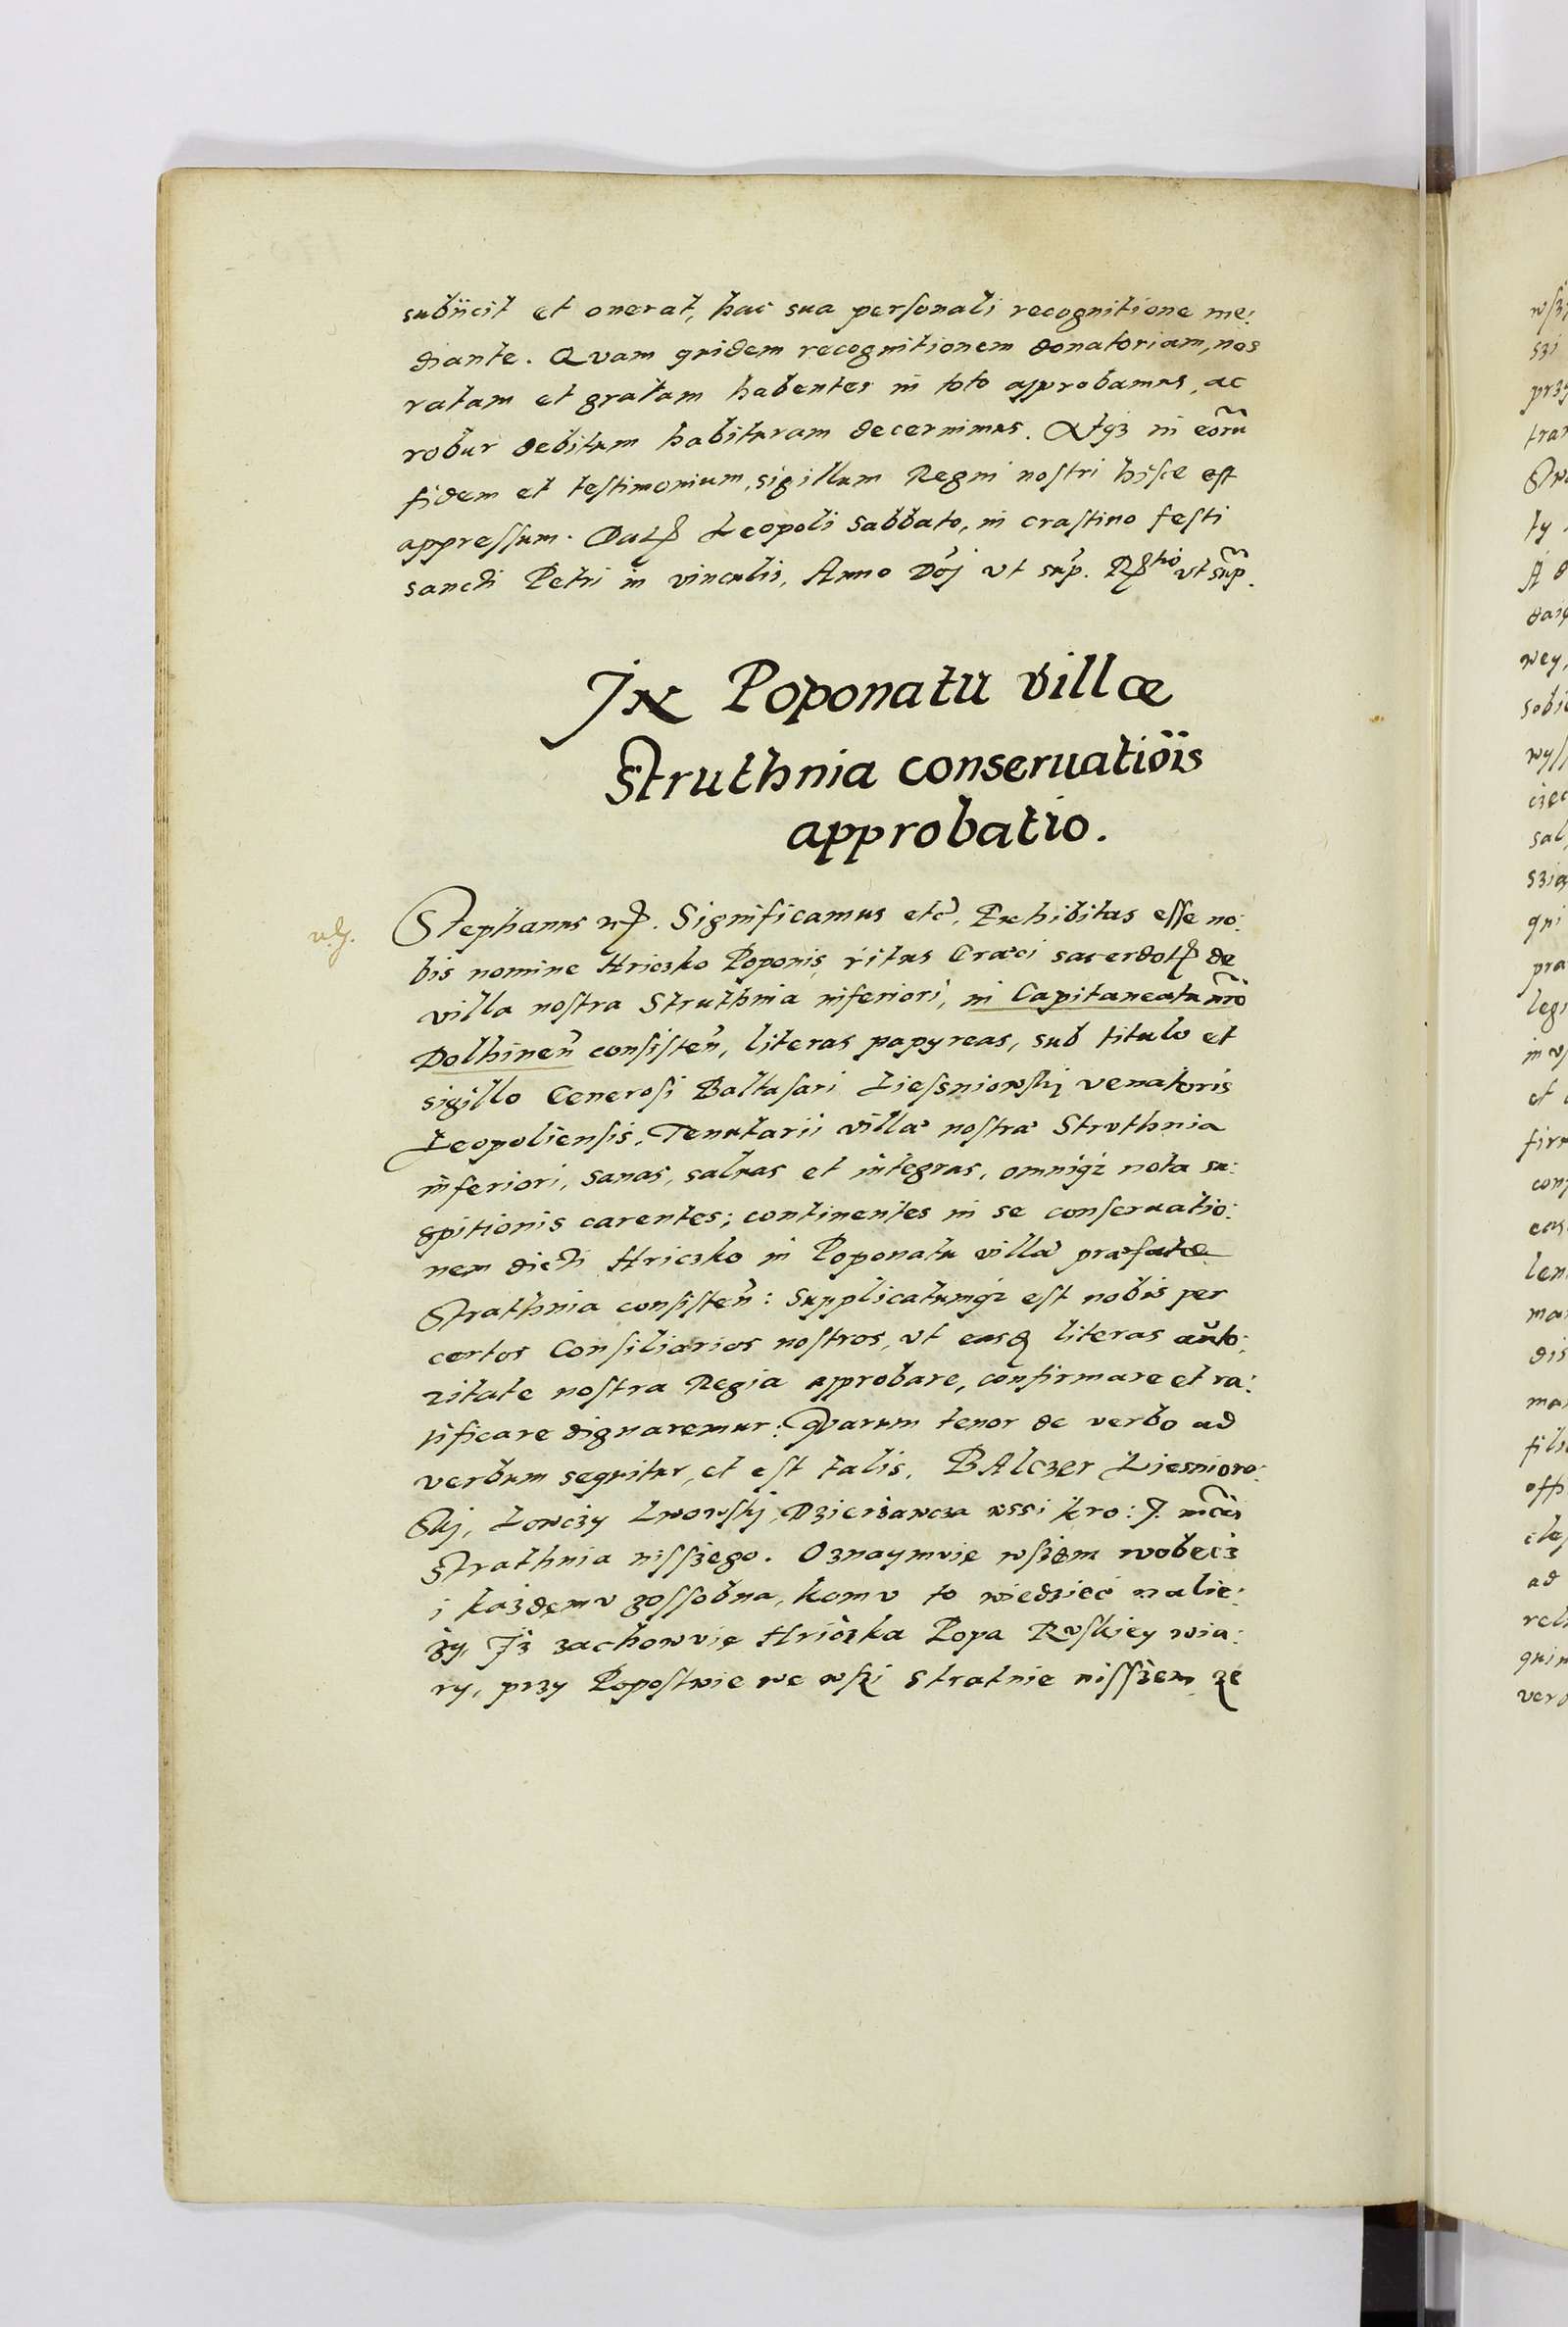 subiicit et onerat, hac sua personali recognitione me:
diante. Quam quidem recognitionem donatoriam, nos
ratam et gratam habentes in toto approbamus, ac
robur debitum habituram decernimus. Atqz in eorũ
fidem et testimonium, sigillum Regni nostri hisce est
appressum. Datꝭ Leopoli Sabbato, in crastino festi
sancti Petri in vinculis, Anno Dñj vt sup̃. Rꝭtio vt sup̃.
IN Poponatu villæ
Struthnia conseruatiõis
approbatio.
Stephanus ꝛꝭ. Significamus etc̃. Exhibitas esse no:
bis nomine Hriczko Poponis, ritus Græci sacerdotꝭ de
villa nostra Struthnia inferiori, in Capitaneatu nrõ
Dolhineñ consisteñ, literas papyreas, sub titulo et
sigillo Generosi Baltasari Liessniowskij venatoris
Leopoliensis, Tenutarii villæ nostræ Struthnia
inferiori, sanas, saluas et integras, omniqz nota su:
spitionis carentes; continentes in se conseruatio:
nem dicti Hriczko in Poponatu villæ præfatæ
Struthnia consisteñ: Supplicatumqz est nobis per
certos Consiliarios nostros, vt easdꝫ literas auto:
ritate nostra Regia approbare, confirmare et ra:
tificare dignaremur: Quarum tenor de verbo ad
verbum sequitur, et est talis. BAlczer Liesniow:
skj, Łowczy Lwowskj, Dzierżawcza wssi kro: J. mcĩ
Strathnia nisszego. Oznaymvię wszem wobecz
i każdemv zossobna, komv to wiedzieć nalie:
ży, Iż zachowvię Hriczka Popa Rvskiey wia:
ry, przy Popostwie we wszi Stratnie nisszem ze